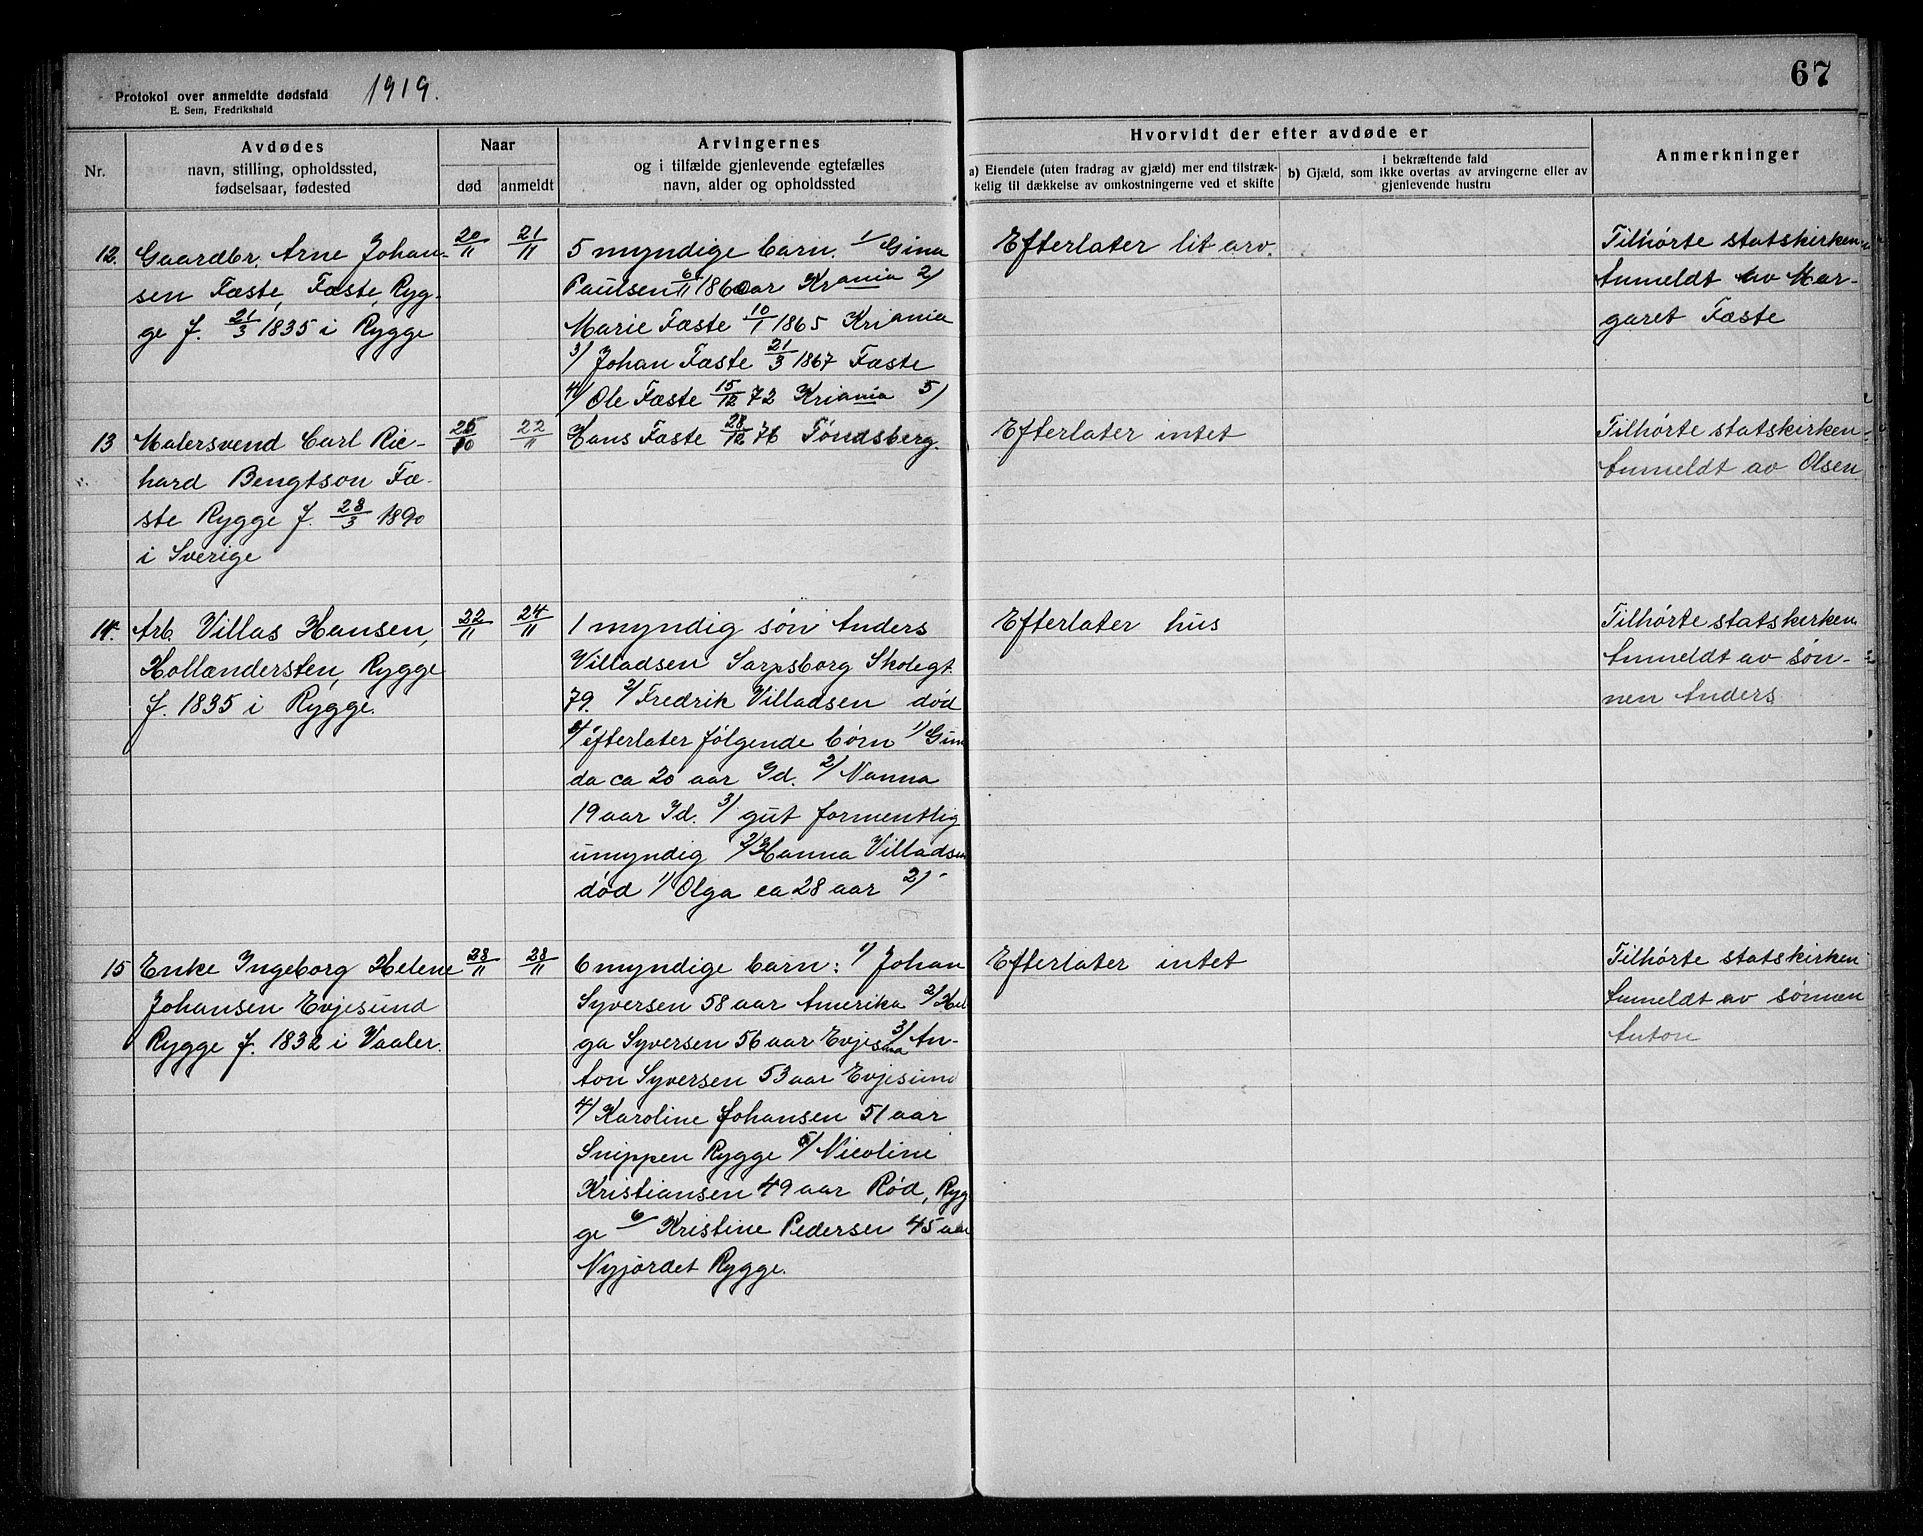 Protokol over anmeldte dødsfald 1919.
E. Sem, Fredrikshald
67
Nr.
Avdødes
navn, stilling, opholdssted,
fødselsaar, fødested
Naar
død anmeldt
Arvingernes
og i tilfælde gjenlevende egtefælles
navn, alder og opholdssted
Hvorvidt der efter avdøde er
a) Eiendele (uten fradrag av gjæld) mer end tilstræk-
kelig til dækkelse av omkostningerne ved et skifte
i bekræftende fald
b) Gjæld, som ikke overtas av arvingerne eller av
gjenlevende hustru
Anmerkninger
12. Gaardbr. Arne Johan-
sen Fæste, Fæste, Ryg-
ge f. 21/3 1835 i Rygge
20/11
21/11
5 myndige barn. 1/ Gina
Paulsen 6/11 1860 aar Krania 2)
Marie Fæste 10/1 1865 Kriania
3/ Johan Fæste 21/3 1867 Fæste
4/ Ole Fæste 15/12 72 Kriania 5)
Hans Fæste 28/12 76 Tøndsberg.
Efterlater lit arv.
Tilhørte statskirken
Anmeldt av Mar-
garet Fæste
13 Malersvend Carl Ric-
hard Bengtson Fæ-
ste Rygge f. 28/3 1890
i Sverige
25/10
22/11
Efterlater intet
Tilhørte statskirken
Anmeldt av Olsen
14. Arb. Villas Hansen,
Hollændersten, Rygge
f. 1835 i Rygge.
22/11
24/11
1 myndig søn Anders
Villadsen Sarpsborg Skolegt.
79. 2/ Fredrik Villadsen død
efterlater følgende børn 1) Gun
da ca 20 aar Id. 2/ Nanna
19 aar Id. 3/ gut formentlig
umyndig 2/ Hanna Villadsen
død 1) Olga ca 28 aar 2)
Efterlater hus
Tilhørte statskirken
Anmeldt av søn-
nen Anders
15 Enke Ingeborg Helene
Johansen Evjesund
Rygge f. 1832 i Vaaler.
28/11
28/11
6 myndige barn: 1) Johan
Syversen 58 aar Amerika 2/ Hel
ga Syversen 56 aar Evjesund 3/ An-
ton Syversen 53 aar Evjesund
4/ Karoline Johansen 51 aar
Snippen Rygge 5/ Nicoline
Kristiansen 49 aar Rød, Ryg
ge 6/ Kristine Pedersen 45 aar
Nyjordet Rygge.
Efterlater intet
Tilhørte statskirken
Anmeldt av sønnen
Anton